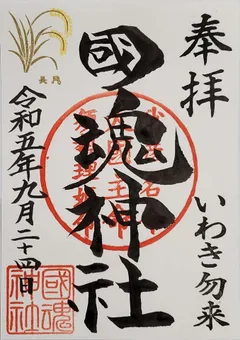 奉拝
いわき勿来
國魂神社
令和五年九月二十四日
長月
國魂
神社